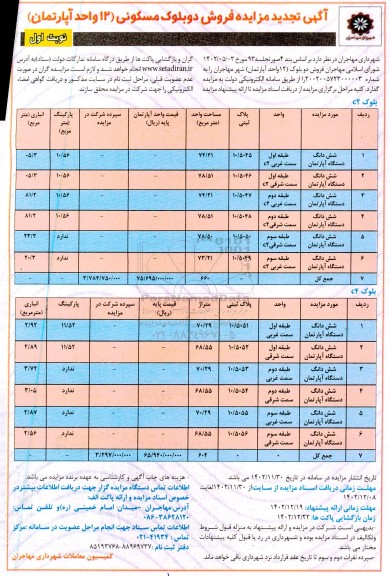 آگهی تجدید مزایده فروش دوبلوک مسکونی (۱۲ واحد آپارتمان)
نوبت اول
شهرداری مهاجران در نظر دارد بر اساس بند ۴ صورتجلسه ۹۳ مورخ ۱۴۰۲/۰۵/۰۲
شورای اسلامی مهاجران فروش دو بلوک (۱۲ واحد آپارتمان) شهر مهاجران را به
گذارد. کلیه مراحل برگزاری از دریافت اسناد مزایده تا ارائه پیشنهاد مزایده
گران و بازگشایی پاکت ها از طریق درگاه سامانه تدارکات دولت (ستاد) به آدرس
www.setadiran.ir انجام خواهد شد و لازم است مزایده گران در صورت
عدم عضویت قبلی، مراحل ثبت نام در سایت مذکور و دریافت گواهی امضاء
الکترونیکی را جهت شرکت در مزایده محقق سازند.
بلوک c۲
ردیف مورد مزایده واحد پلاک ثبتی مساحت واحد (متر مربع) قیمت واحد آپارتمان پایه (ریال) سپرده شرکت در مزایده پارکینگ (متر مربع) انباری (متر مربع)
۱ شش دانگ دستگاه آپارتمان طبقه اول سمت غربی c۲ ۱۰/۵۰۴۵ ۷۴/۴۱ - - ۱۰/۵۶ ۰۵/۳
۲ شش دانگ دستگاه آپارتمان طبقه اول سمت شرقی c۲ ۱۰/۵۰۴۶ ۷۸/۵۱ - - ۱۰/۵۶ ۰۵/۳
۳ شش دانگ دستگاه آپارتمان طبقه دوم سمت غربی c۲ ۱۰/۵۰۴۷ ۷۴/۴۱ - - ۱۰/۵۶ ۸۱/۲
۴ شش دانگ دستگاه آپارتمان طبقه دوم سمت شرقی c۲ ۱۰/۵۰۴۸ ۷۸/۵۱ - - ۱۰/۵۶ ۸۱/۲
۵ شش دانگ دستگاه آپارتمان طبقه سوم سمت شرقی c۲ ۱۰/۵۰۵۰ - - ندارد ۲۳/۳
۶ شش دانگ دستگاه آپارتمان طبقه سوم سمت غربی c۲ ۱۰/۵۰۴۹ - - ندارد ۲۰/۳
۷ جمع کل ۶۶۰ ۷۵/۶۹۵/۰۰۰/۰۰۰ ۳/۷۸۴/۷۵۰/۰۰۰ -
بلوک c۴
ردیف مورد مزایده واحد پلاک ثبتی متراژ قیمت پایه (ریال) سپرده شرکت در مزایده پارکینگ انباری (مترمربع)
۱ شش دانگ دستگاه آپارتمان طبقه اول سمت غربی ۱۰/۵۰۵۱ ۷۰/۲۹ - - ۱۱/۵۲ ۲/۹۲
۲ شش دانگ دستگاه آپارتمان طبقه اول سمت شرقی ۱۰/۵۰۵۲ ۶۸/۵۵ - - ۱۱/۵۲ ۲/۸۹
۳ شش دانگ دستگاه آپارتمان طبقه دوم سمت غربی ۱۰/۵۰۵۳ ۷۰/۲۹ - - ندارد ۳/۷۲
۴ شش دانگ دستگاه آپارتمان طبقه دوم سمت شرقی ۱۰/۵۰۵۴ ۶۸/۵۵ - - ندارد ۳/۰۵
۵ شش دانگ دستگاه آپارتمان طبقه سوم سمت غربی ۱۰/۵۰۵۵ ۷۰/۲۹ - - ندارد ۲/۸۷
۶ شش دانگ دستگاه آپارتمان طبقه سوم سمت شرقی ۱۰/۵۰۵۶ ۶۸/۵۵ - - ندارد ۲/۵۶
۷ جمع کل ۶۰۴ ۶۵/۹۴۰/۰۰۰/۰۰۰ ۳/۲۹۷/۰۰۰/۰۰۰ -
تاریخ انتشار مزایده در سامانه در تاریخ ۱۴۰۲/۱۱/۳۰ می باشد.
مهلت زمانی دریافت اسناد مزایده از سایت: از ۱۴۰۲/۱۱/۳۰ لغایت
۱۴۰۲/۱۲/۰۸
مهلت زمانی ارائه پیشنهاد: ۱۴۰۲/۱۲/۱۹
زمان بازگشایی پاکت ها: ۱۴۰۲/۱۲/۲۲
-بدیهی است شرکت در مزایده و ارائه پیشنهاد به منزله قبول شروط
وتکالیف در اسناد مزایده بوده و شهرداری در رد یا قبول کلیه پیشنهادات
مختار می باشد.
-سپرده نفرات دوم و سوم تا تاریخ عقد قرارداد نزد شهرداری باقی خواهد ماند.
-هزینه های چاپ آگهی و کارشناسی به عهده برنده مزایده می باشد.
اطلاعات تماس دستگاه مزایده گزار جهت دریافت اطلاعات بیشتر در
خصوص اسناد مزایده و ارائه پاکت الف:
آدرس: مهاجران - میدان امام خمینی (ره) و تلفن تماس:
۰۸۶-۳۸۶۲۸۱۲۰
اطلاعات تماس ستاد جهت انجام مراحل عضویت در سامانه: مرکز
تماس: ۴۱۹۳۴-۰۲۱
دفتر ثبت نام: ۸۸۹۶۹۷۳۷-۸۵۱۹۳۷۶۸
کمیسیون معاملات شهرداری مهاجران